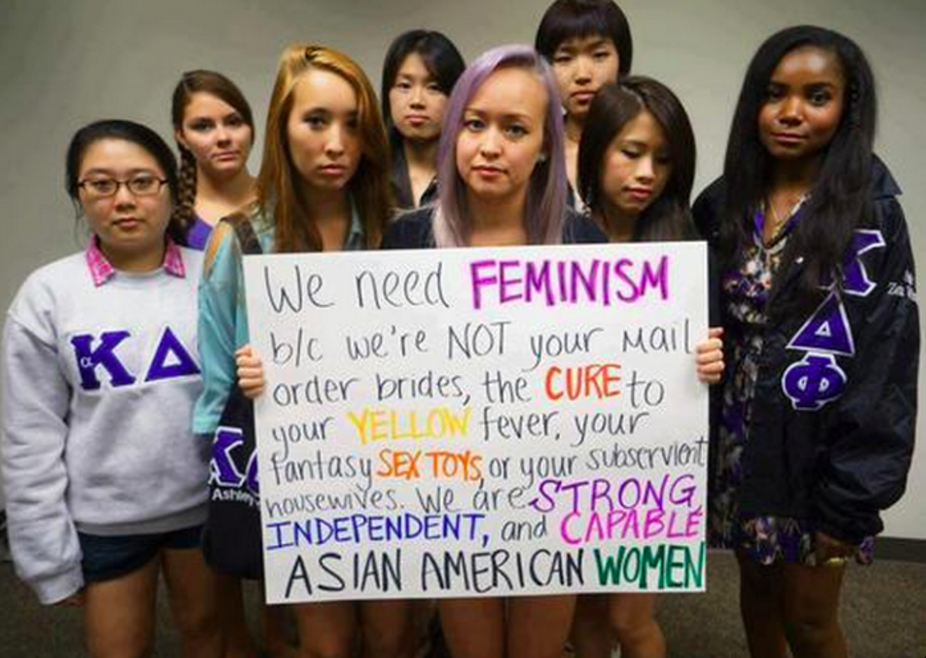 We need FEMINISM
b/c we're NOT your Mail
order brides, the CURE to
your YELLOW fever, your
fantasy SEX TOYS, or your subservient
housewives. We are STRONG,
INDEPENDENT, and CAPABLE
ASIAN AMERICAN WOMEN
αΚΔ
Ashley
ΔΦ